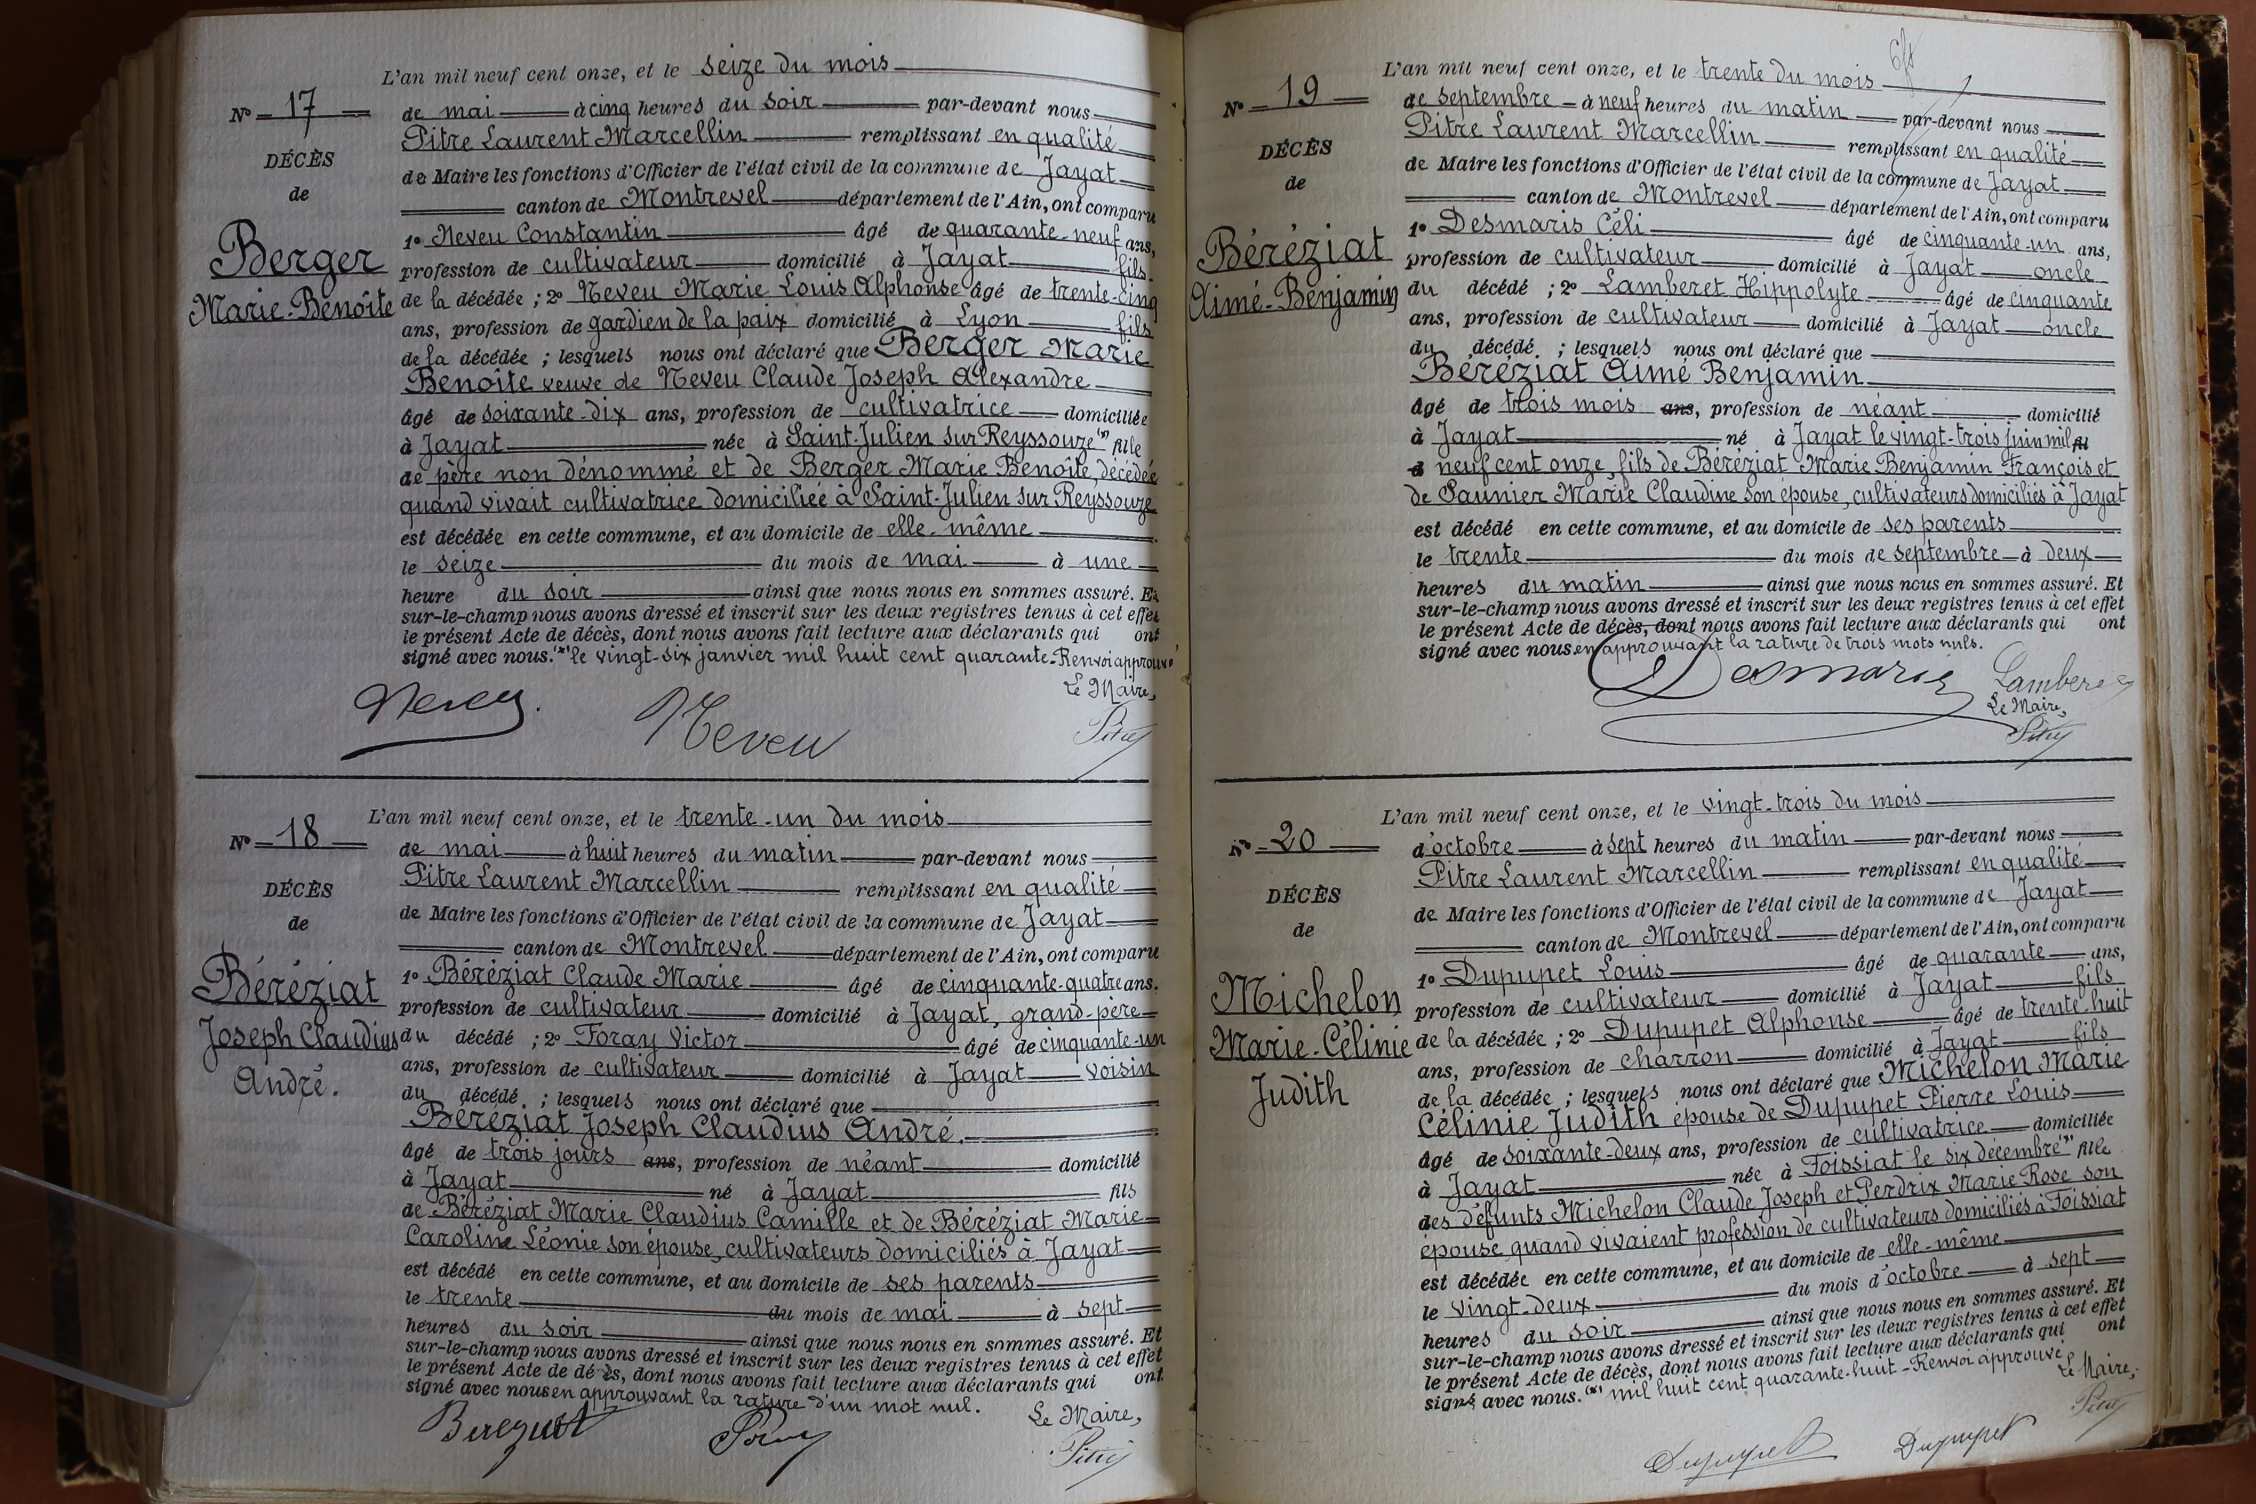 L'an mil neuf cent onze, et le seize du mois
No 17
de mai à cinq heures du soir par-devant nous
Pitre Laurent Marcellin remplissant en qualité
DÉCÈS
de Maire les fonctions d'Officier de l'état civil de la commune de Jayat
de
canton de Montrevel département de l'Ain, ont comparu
1o Neveu Constantin âgé de quarante-neuf ans,
Berger
profession de cultivateur domicilié à Jayat fils
Marie-Benoîte
de la décédée ; 2o Neveu Marie Louis Alphonse âgé de trente-cinq
ans, profession de gardien de la paix domicilié à Lyon fils
de la décédée ; lesquels nous ont déclaré que Berger Marie
Benoîte veuve de Neveu Claude Joseph Alexandre
âgé de soixante-dix ans, profession de cultivatrice domiciliée
à Jayat née à Saint-Julien sur Reyssouze (x) fille
de père non dénommé et de Berger Marie Benoîte, décédée
quand vivait cultivatrice domiciliée à Saint-Julien sur Reyssouze
est décédée en cette commune, et au domicile de elle-même
le seize du mois de mai à une
heure du soir ainsi que nous nous en sommes assuré. Et
sur-le-champ nous avons dressé et inscrit sur les deux registres tenus à cet effet
le présent Acte de décès, dont nous avons fait lecture aux déclarants qui ont
signé avec nous. (x) le vingt-six janvier mil huit cent quarante-Renvoi approuvé
Le Maire,
Neveu
Neveu
Pitre
L'an mil neuf cent onze, et le trente-un du mois
No 18
de mai à huit heures du matin par-devant nous
Pitre Laurent Marcellin remplissant en qualité
DÉCÈS
de Maire les fonctions d'Officier de l'état civil de la commune de Jayat
de
canton de Montrevel département de l'Ain, ont comparu
1o Béréziat Claude Marie âgé de cinquante-quatre ans.
Béréziat
profession de cultivateur domicilié à Jayat, grand-père
Joseph Claudius
du décédé ; 2o Foray Victor âgé de cinquante-un
ans, profession de cultivateur domicilié à Jayat voisin
André.
du décédé. ; lesquels nous ont déclaré que
Béréziat Joseph Claudius André.
âgé de trois jours ans, profession de néant domicilié
à Jayat né à Jayat fils
de Béréziat Marie Claudius Camille et de Béréziat Marie
Caroline Léonie son épouse, cultivateurs domiciliés à Jayat
est décédé en cette commune, et au domicile de ses parents
le trente du mois de mai à sept
heures du soir ainsi que nous nous en sommes assuré. Et
sur-le-champ nous avons dressé et inscrit sur les deux registres tenus à cet effet
le présent Acte de décès, dont nous avons fait lecture aux déclarants qui ont
signé avec nous en approuvant la rature d'un mot nul.
Le Maire,
Béréziat
Foray
Pitre
L'an mil neuf cent onze, et le trente du mois
No 19
de septembre à neuf heures du matin par-devant nous
Pitre Laurent Marcellin remplissant en qualité
DÉCÈS
de Maire les fonctions d'Officier de l'état civil de la commune de Jayat
de
canton de Montrevel département de l'Ain, ont comparu
1o Desmaris Céli âgé de cinquante-un ans,
Béréziat
profession de cultivateur domicilié à Jayat oncle
Aimé-Benjamin
du décédé ; 2o Lamberet Hippolyte âgé de cinquante
ans, profession de cultivateur domicilié à Jayat oncle
du décédé. ; lesquels nous ont déclaré que
Béréziat Aimé Benjamin
âgé de trois mois ans, profession de néant domicilié
à Jayat né à Jayat le vingt-trois juin mil fil
d neuf cent onze, fils de Béréziat Marie Benjamin François et
de Saunier Marie Claudine son épouse, cultivateurs domiciliés à Jayat
est décédé en cette commune, et au domicile de ses parents
le trente du mois de septembre à deux
heures du matin ainsi que nous nous en sommes assuré. Et
sur-le-champ nous avons dressé et inscrit sur les deux registres tenus à cet effet
le présent Acte de décès, dont nous avons fait lecture aux déclarants qui ont
signé avec nous en approuvant la rature de trois mots nuls.
Desmaris
Lamberet
Le Maire,
Pitre
L'an mil neuf cent onze, et le vingt-trois du mois
No 20
d'octobre à sept heures du matin par-devant nous
Pitre Laurent Marcellin remplissant en qualité
DÉCÈS
de Maire les fonctions d'Officier de l'état civil de la commune de Jayat
de
canton de Montrevel département de l'Ain, ont comparu
1o Dupupet Louis âgé de quarante ans,
Michelon
profession de cultivateur domicilié à Jayat fils
Marie-Célinie
de la décédée ; 2o Dupupet Alphonse âgé de trente-huit
ans, profession de charron domicilié à Jayat fils
Judith
de la décédée ; lesquels nous ont déclaré que Michelon Marie
Célinie Judith épouse de Dupupet Pierre Louis
âgé de soixante-deux ans, profession de cultivatrice domiciliée
à Jayat née à Foissiat le six décembre (x) fille
des défunts Michelon Claude Joseph et Perdrix Marie-Rose son
épouse quand vivaient profession de cultivateurs domiciliés à Foissiat
est décédée en cette commune, et au domicile de elle-même
le vingt-deux du mois d'octobre à sept
heures du soir ainsi que nous nous en sommes assuré. Et
sur-le-champ nous avons dressé et inscrit sur les deux registres tenus à cet effet
le présent Acte de décès, dont nous avons fait lecture aux déclarants qui ont
signé avec nous. (x) mil huit cent quarante-huit-Renvoi approuvé
Le Maire,
Pitre
Dupupet
Dupupet